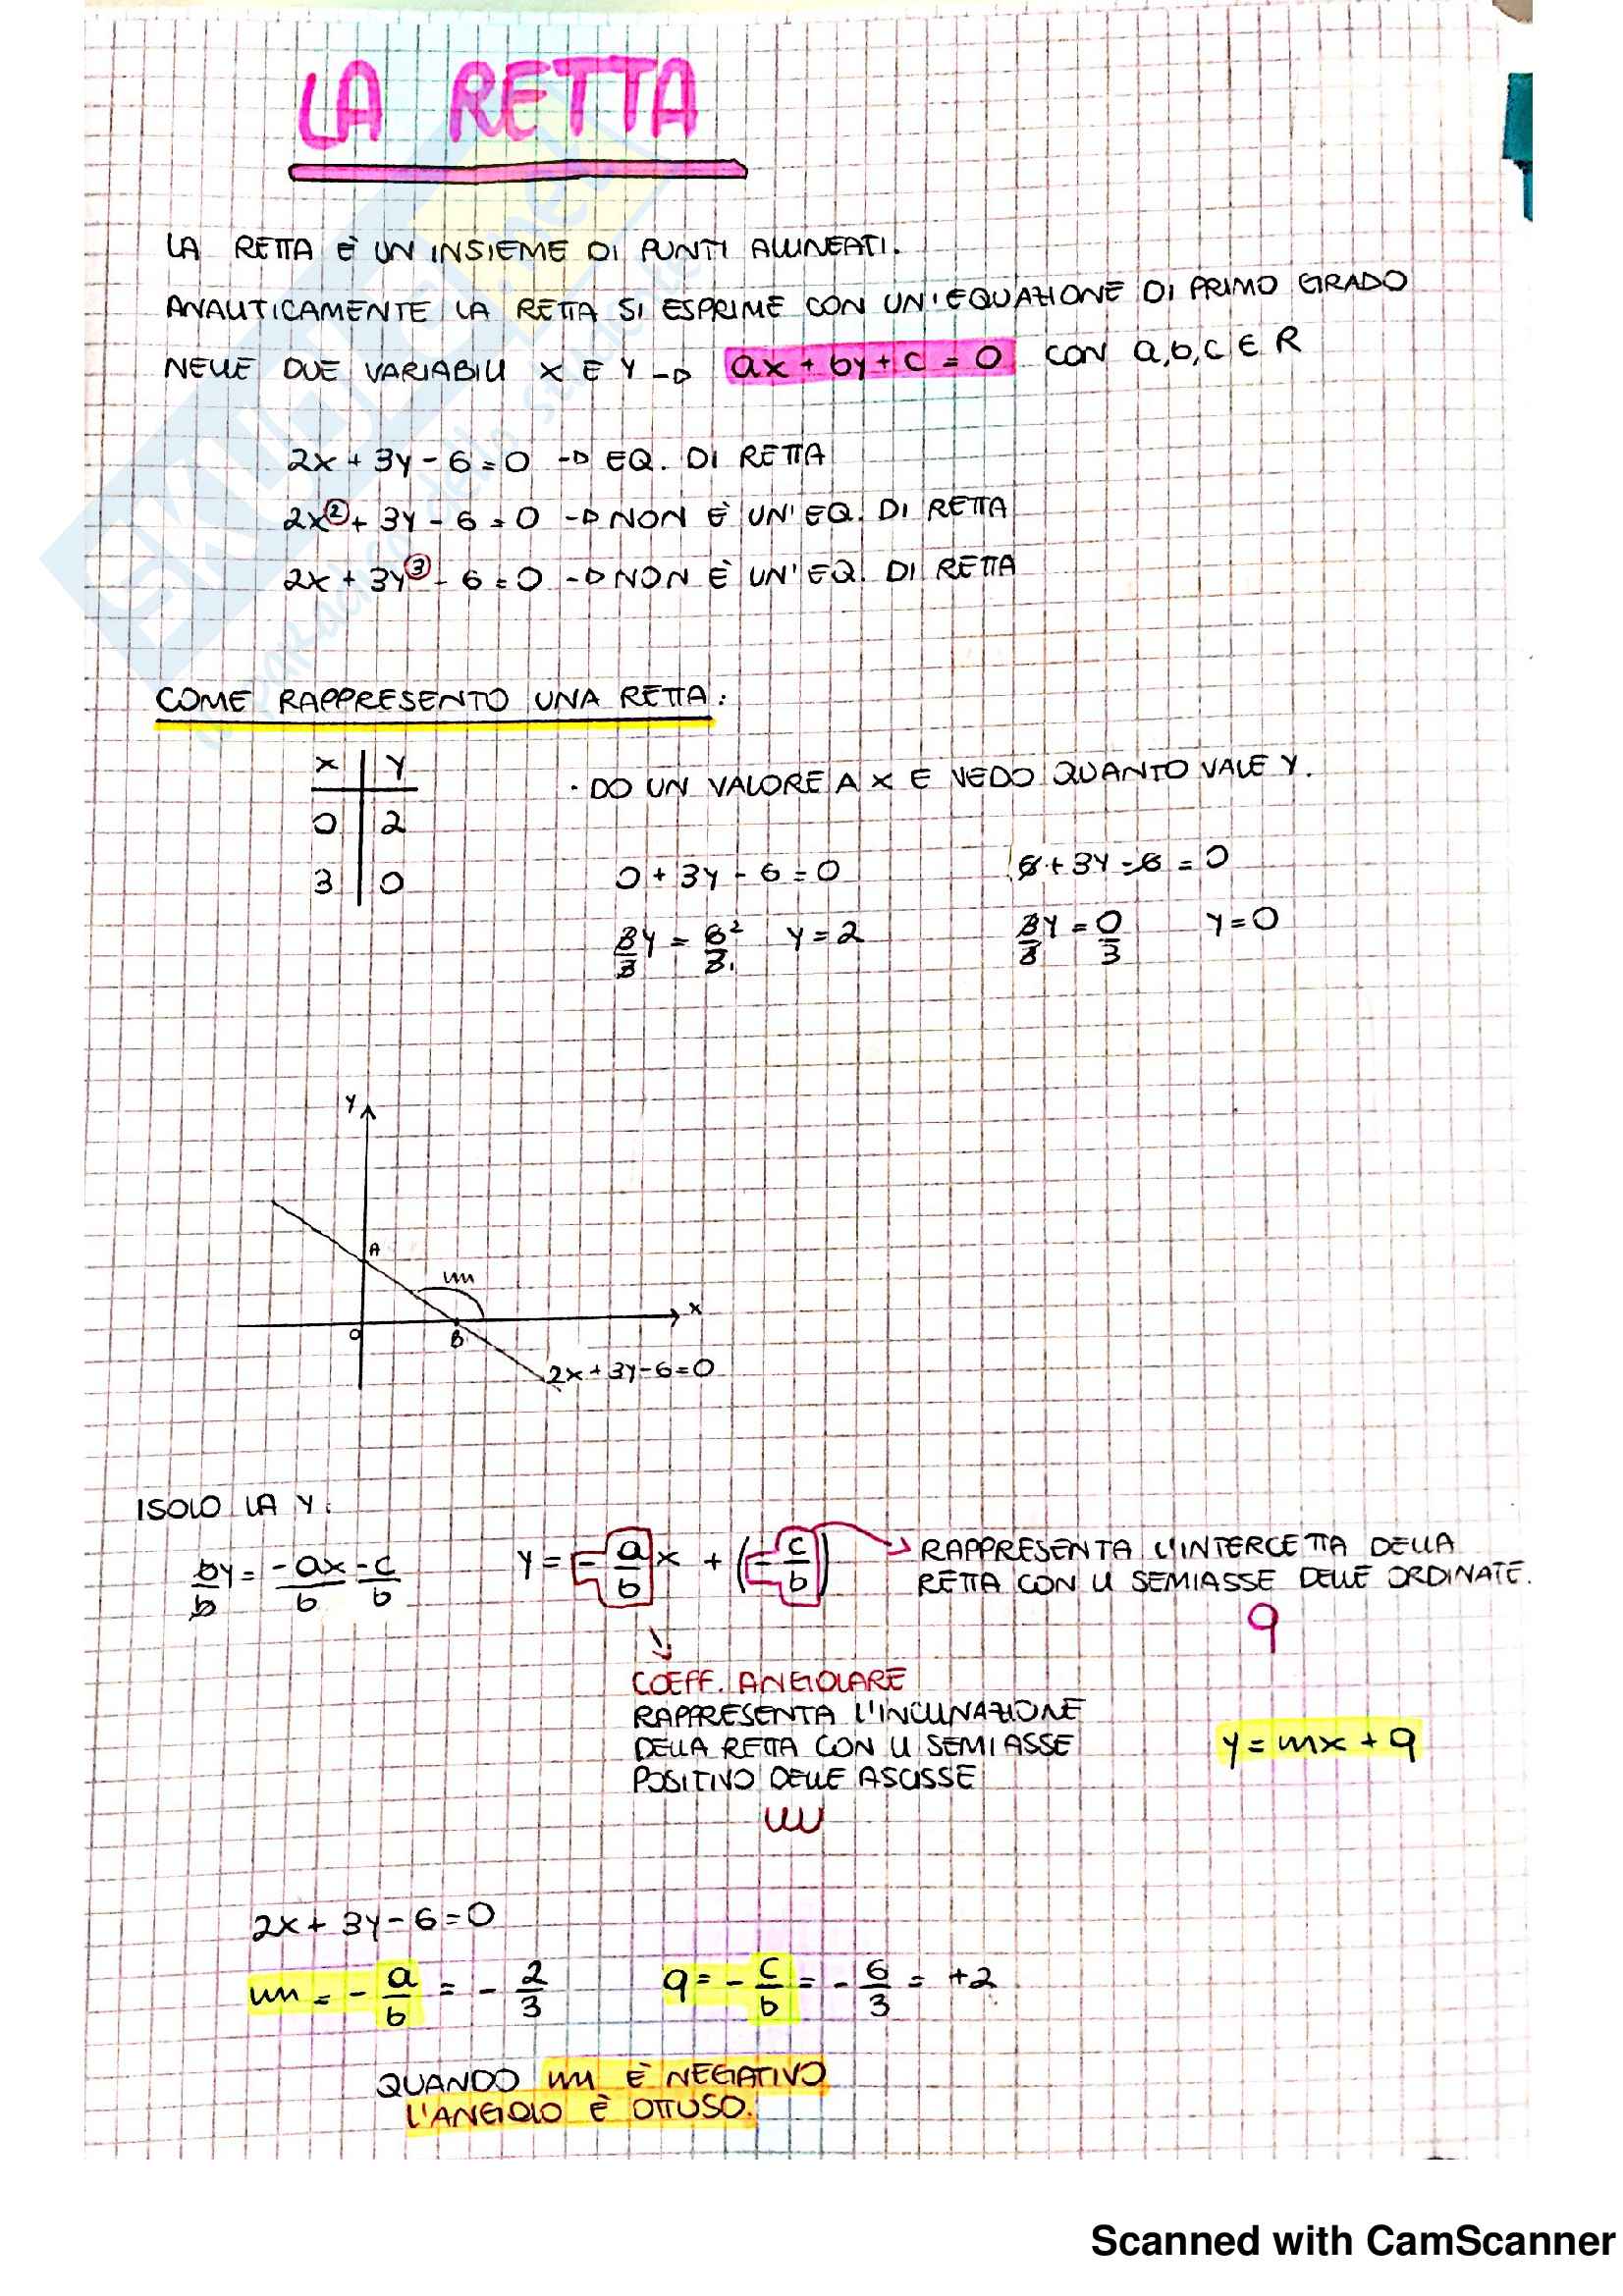 LA RETTA
LA RETTA È UN INSIEME DI PUNTI ALLINEATI.
ANALITICAMENTE LA RETTA SI ESPRIME CON UN'EQUAZIONE DI PRIMO GRADO
NELLE DUE VARIABILI X E Y → ax + by + c = 0 CON a,b,c ∈ R
2x + 3y - 6 = 0 → EQ. DI RETTA
2x² + 3y - 6 = 0 → NON È UN'EQ. DI RETTA
2x + 3y³ - 6 = 0 → NON È UN'EQ. DI RETTA
COME RAPPRESENTO UNA RETTA:
x | y
0 | 2
3 | 0
· DO UN VALORE A X E VEDO QUANTO VALE Y.
0 + 3y - 6 = 0
6 + 3y - 6 = 0
3y/3 = 6²/3₁ y = 2
3y/3 = 0/3 y = 0
y
A
m
x
O
B
2x + 3y - 6 = 0
ISOLO LA Y:
by/b = -ax/b -c/b
y = -a/b x + (-c/b) → RAPPRESENTA L'INTERCETTA DELLA
RETTA CON IL SEMIASSE DELLE ORDINATE.
q
COEFF. ANGOLARE
RAPPRESENTA L'INCLINAZIONE
DELLA RETTA CON IL SEMIASSE
POSITIVO DELLE ASCISSE
m
y = mx + q
2x + 3y - 6 = 0
m = -a/b = -2/3
q = -c/b = -6/3 = +2
QUANDO m È NEGATIVO
L'ANGOLO È OTTUSO.
Scanned with CamScanner